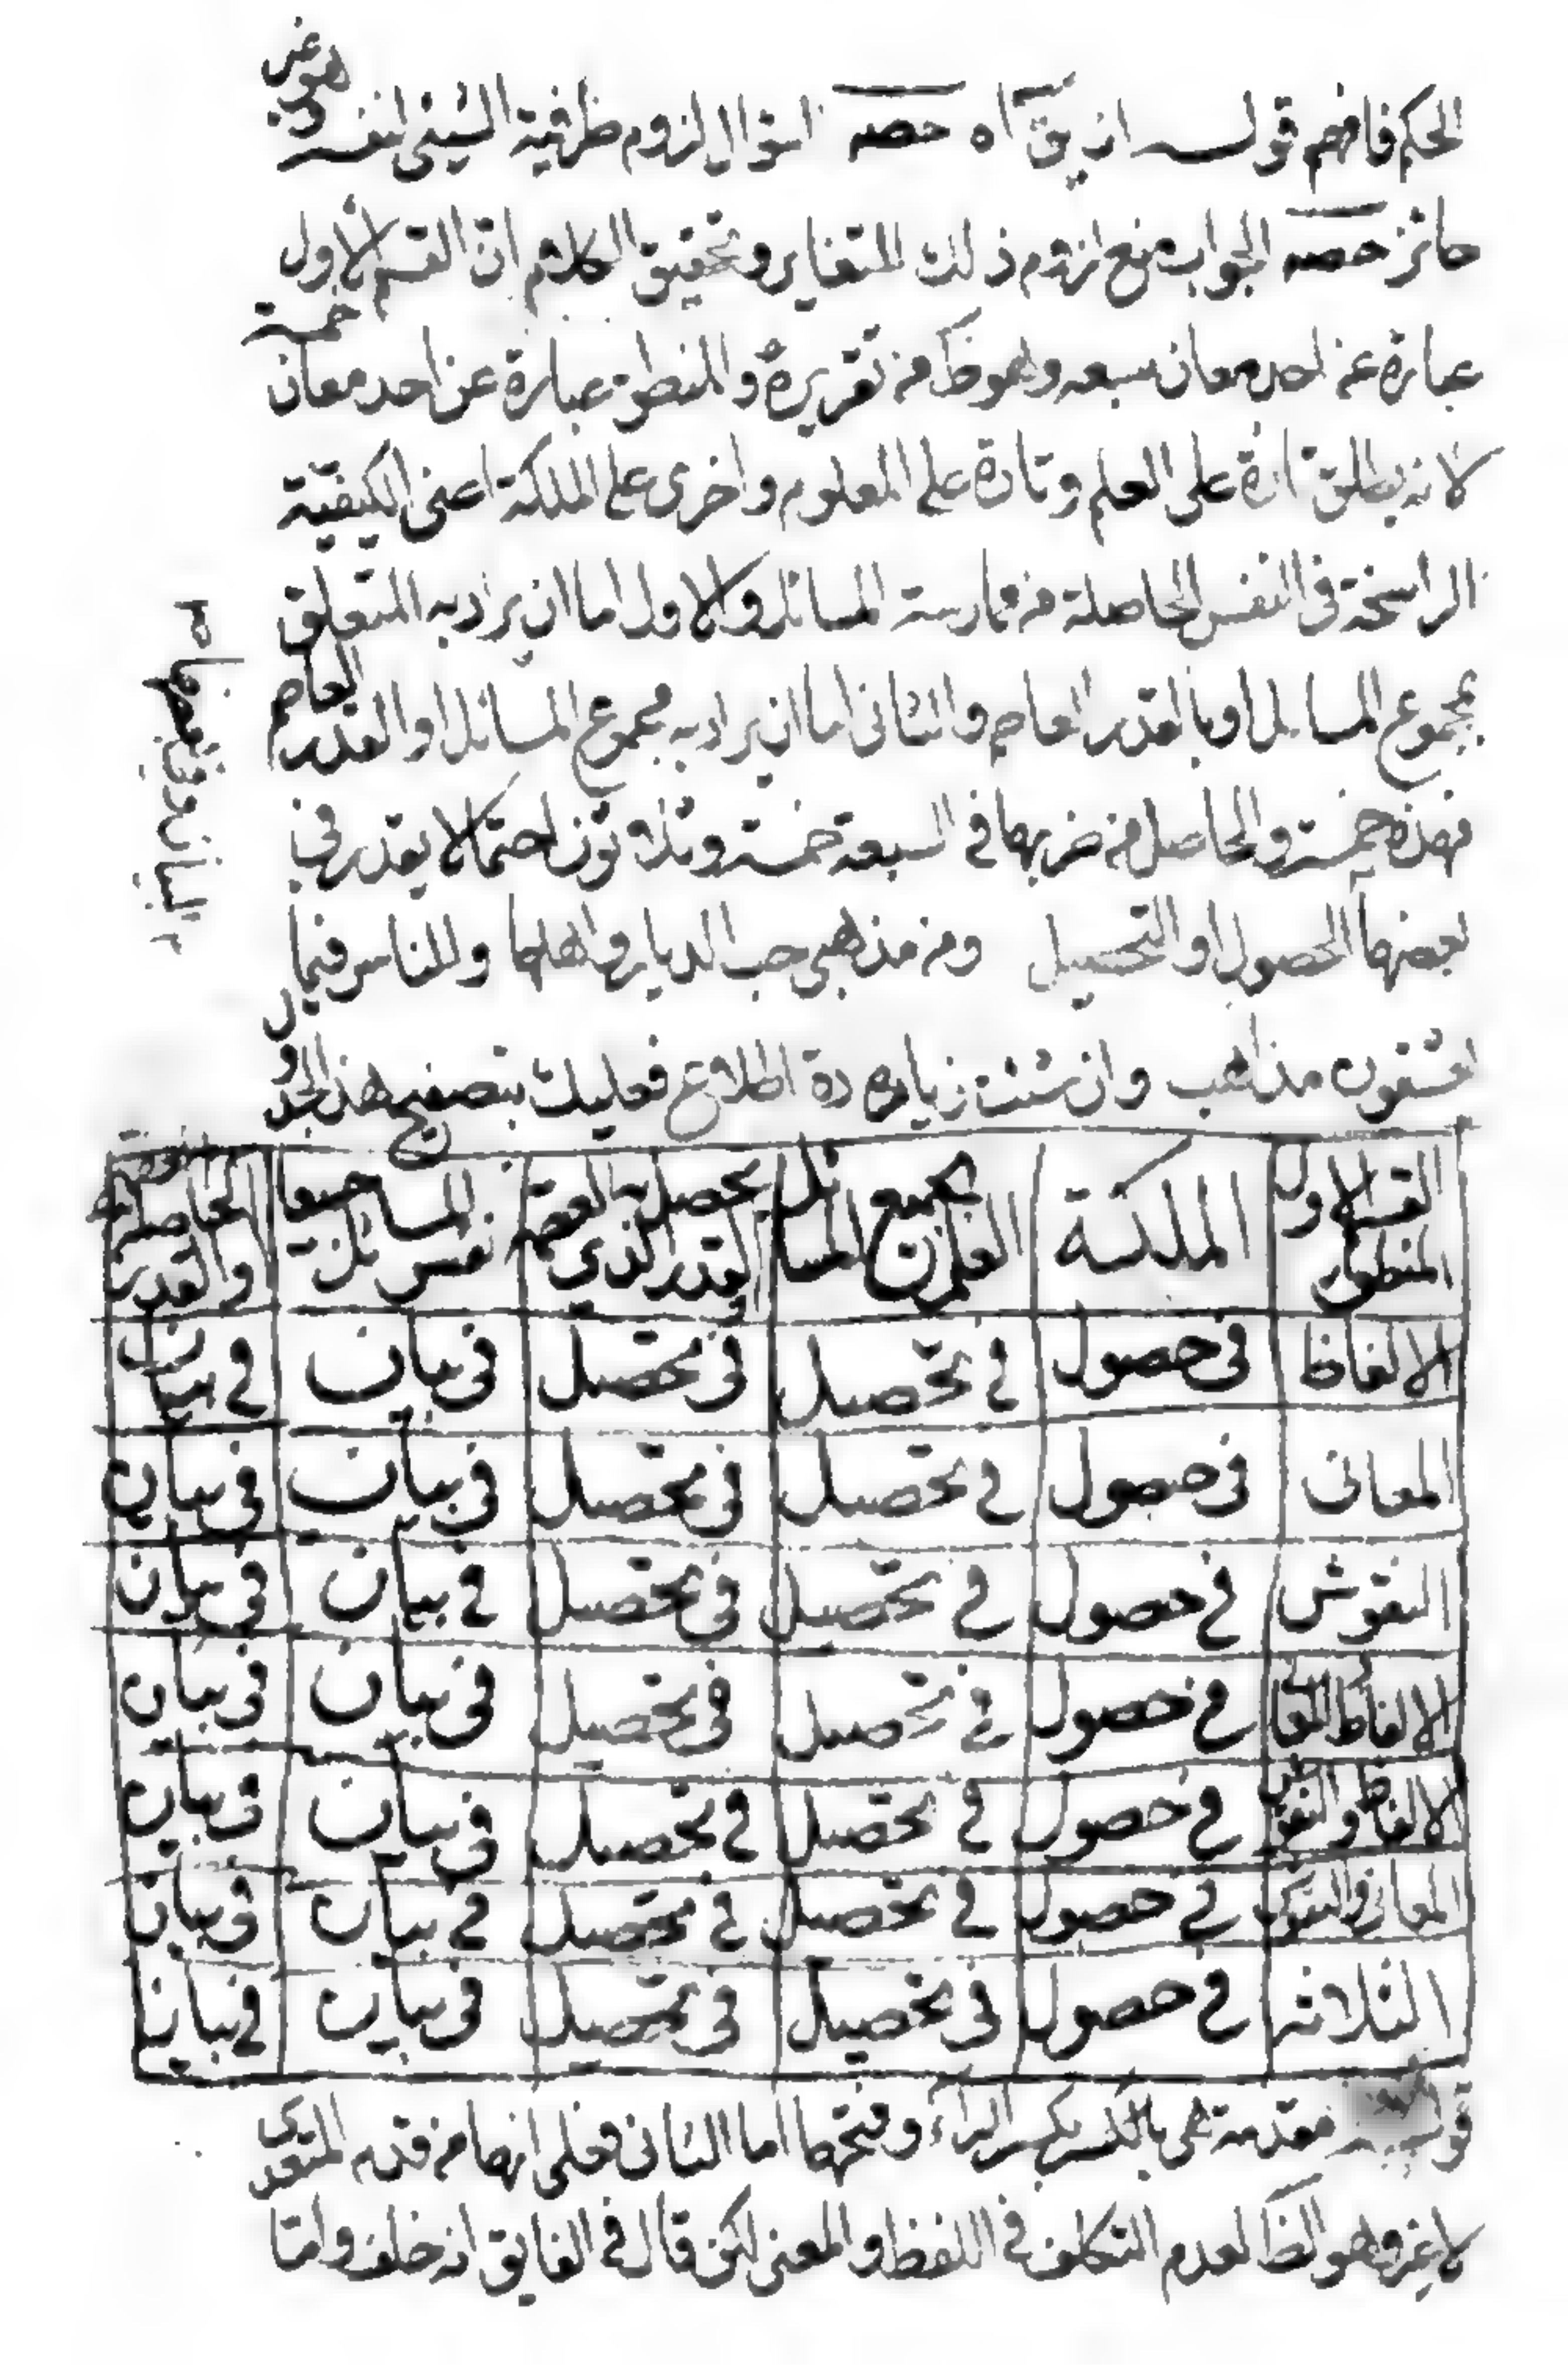 الحكم فافهم قوله ان يق آه حصه السؤال لزوم ظرفية الشيئ لنفسه وهو غير
جائز حصه الجواب منع لزوم ذلك للتغاير وتحقيق الكلام ان القسم الاول
عبارة عن احد معان سبعه وهو ظ من تقريره والمنطق عبارة عن احد معان خمسة
لانه يطلق تارة على العلم وتارة على المعلوم واخرى على الملكة اعنى الكيفية
الراسخة فى النفس الحاصلة من ممارسة المسائل والاول اما ان يراد به المتعلق
بمجموع المسائل او بالقدر العاصم والثانى اما ان يراد به مجموع المسائل او القدر العاصم
فهذه خمسة والحاصل من ضربها فى السبعة خمسة وثلاثون احتمالا يقدر فى
بعضها الحصول او التحصيل ومن مذهبى حب الديار واهلها وللناس فيما
يعشقون مذاهب وان شئت زيادة اطلاع فعليك بتصفيح هذا الجدول
البيان وفى بعضها
القسم الاول المنطق الملكة العلم بجميع المسائل القدر الذى يحصل به العصمة نفس المسائل جميعا والقدر
الالفاظ فى حصول فى تحصيل فى تحصيل فى بيان فى بيان
المعانى فى حصول فى تحصيل فى تحصيل فى بيان فى بيان
النقوش فى حصول فى تحصيل فى تحصيل فى بيان فى بيان
الالفاظ المعانى فى حصول فى تحصيل فى تحصيل فى بيان فى بيان
الالفاظ والنقوش فى حصول فى تحصيل فى تحصيل فى بيان فى بيان
المعانى والنقوش فى حصول فى تحصيل فى تحصيل فى بيان فى بيان
الثلاثه فى حصول فى تحصيل فى تحصيل فى بيان فى بيان
قوله مقدمة هى بالكسر بكسر الراء وفتحها اما الثانى فعلى انها من قدم المتعدى
لا غير وهو الظ لعدم التكلف فى اللفظ والمعنى لكن قال فى الفايق انه خلف واما